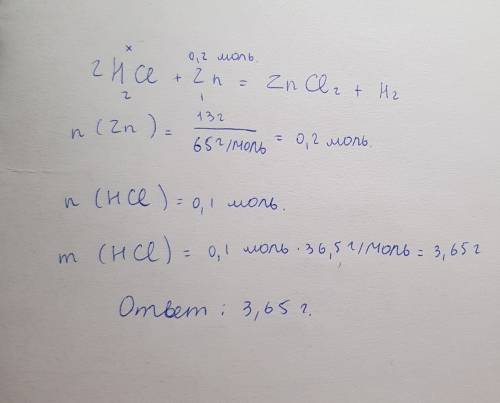 x 0,2 моль.
2HCl + Zn = ZnCl₂ + H₂
2 1
n (Zn) = 13г / 65г/моль = 0,2 моль.
n (HCl) = 0,1 моль.
m (HCl) = 0,1 моль · 36,5г/моль = 3,65г
Ответ : 3,65г.